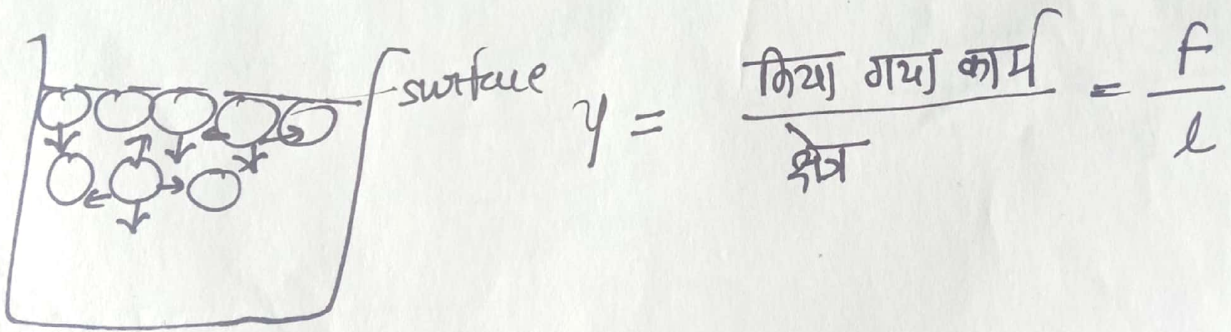 surface
y = किया गया कार्य / क्षेत्र = f / l